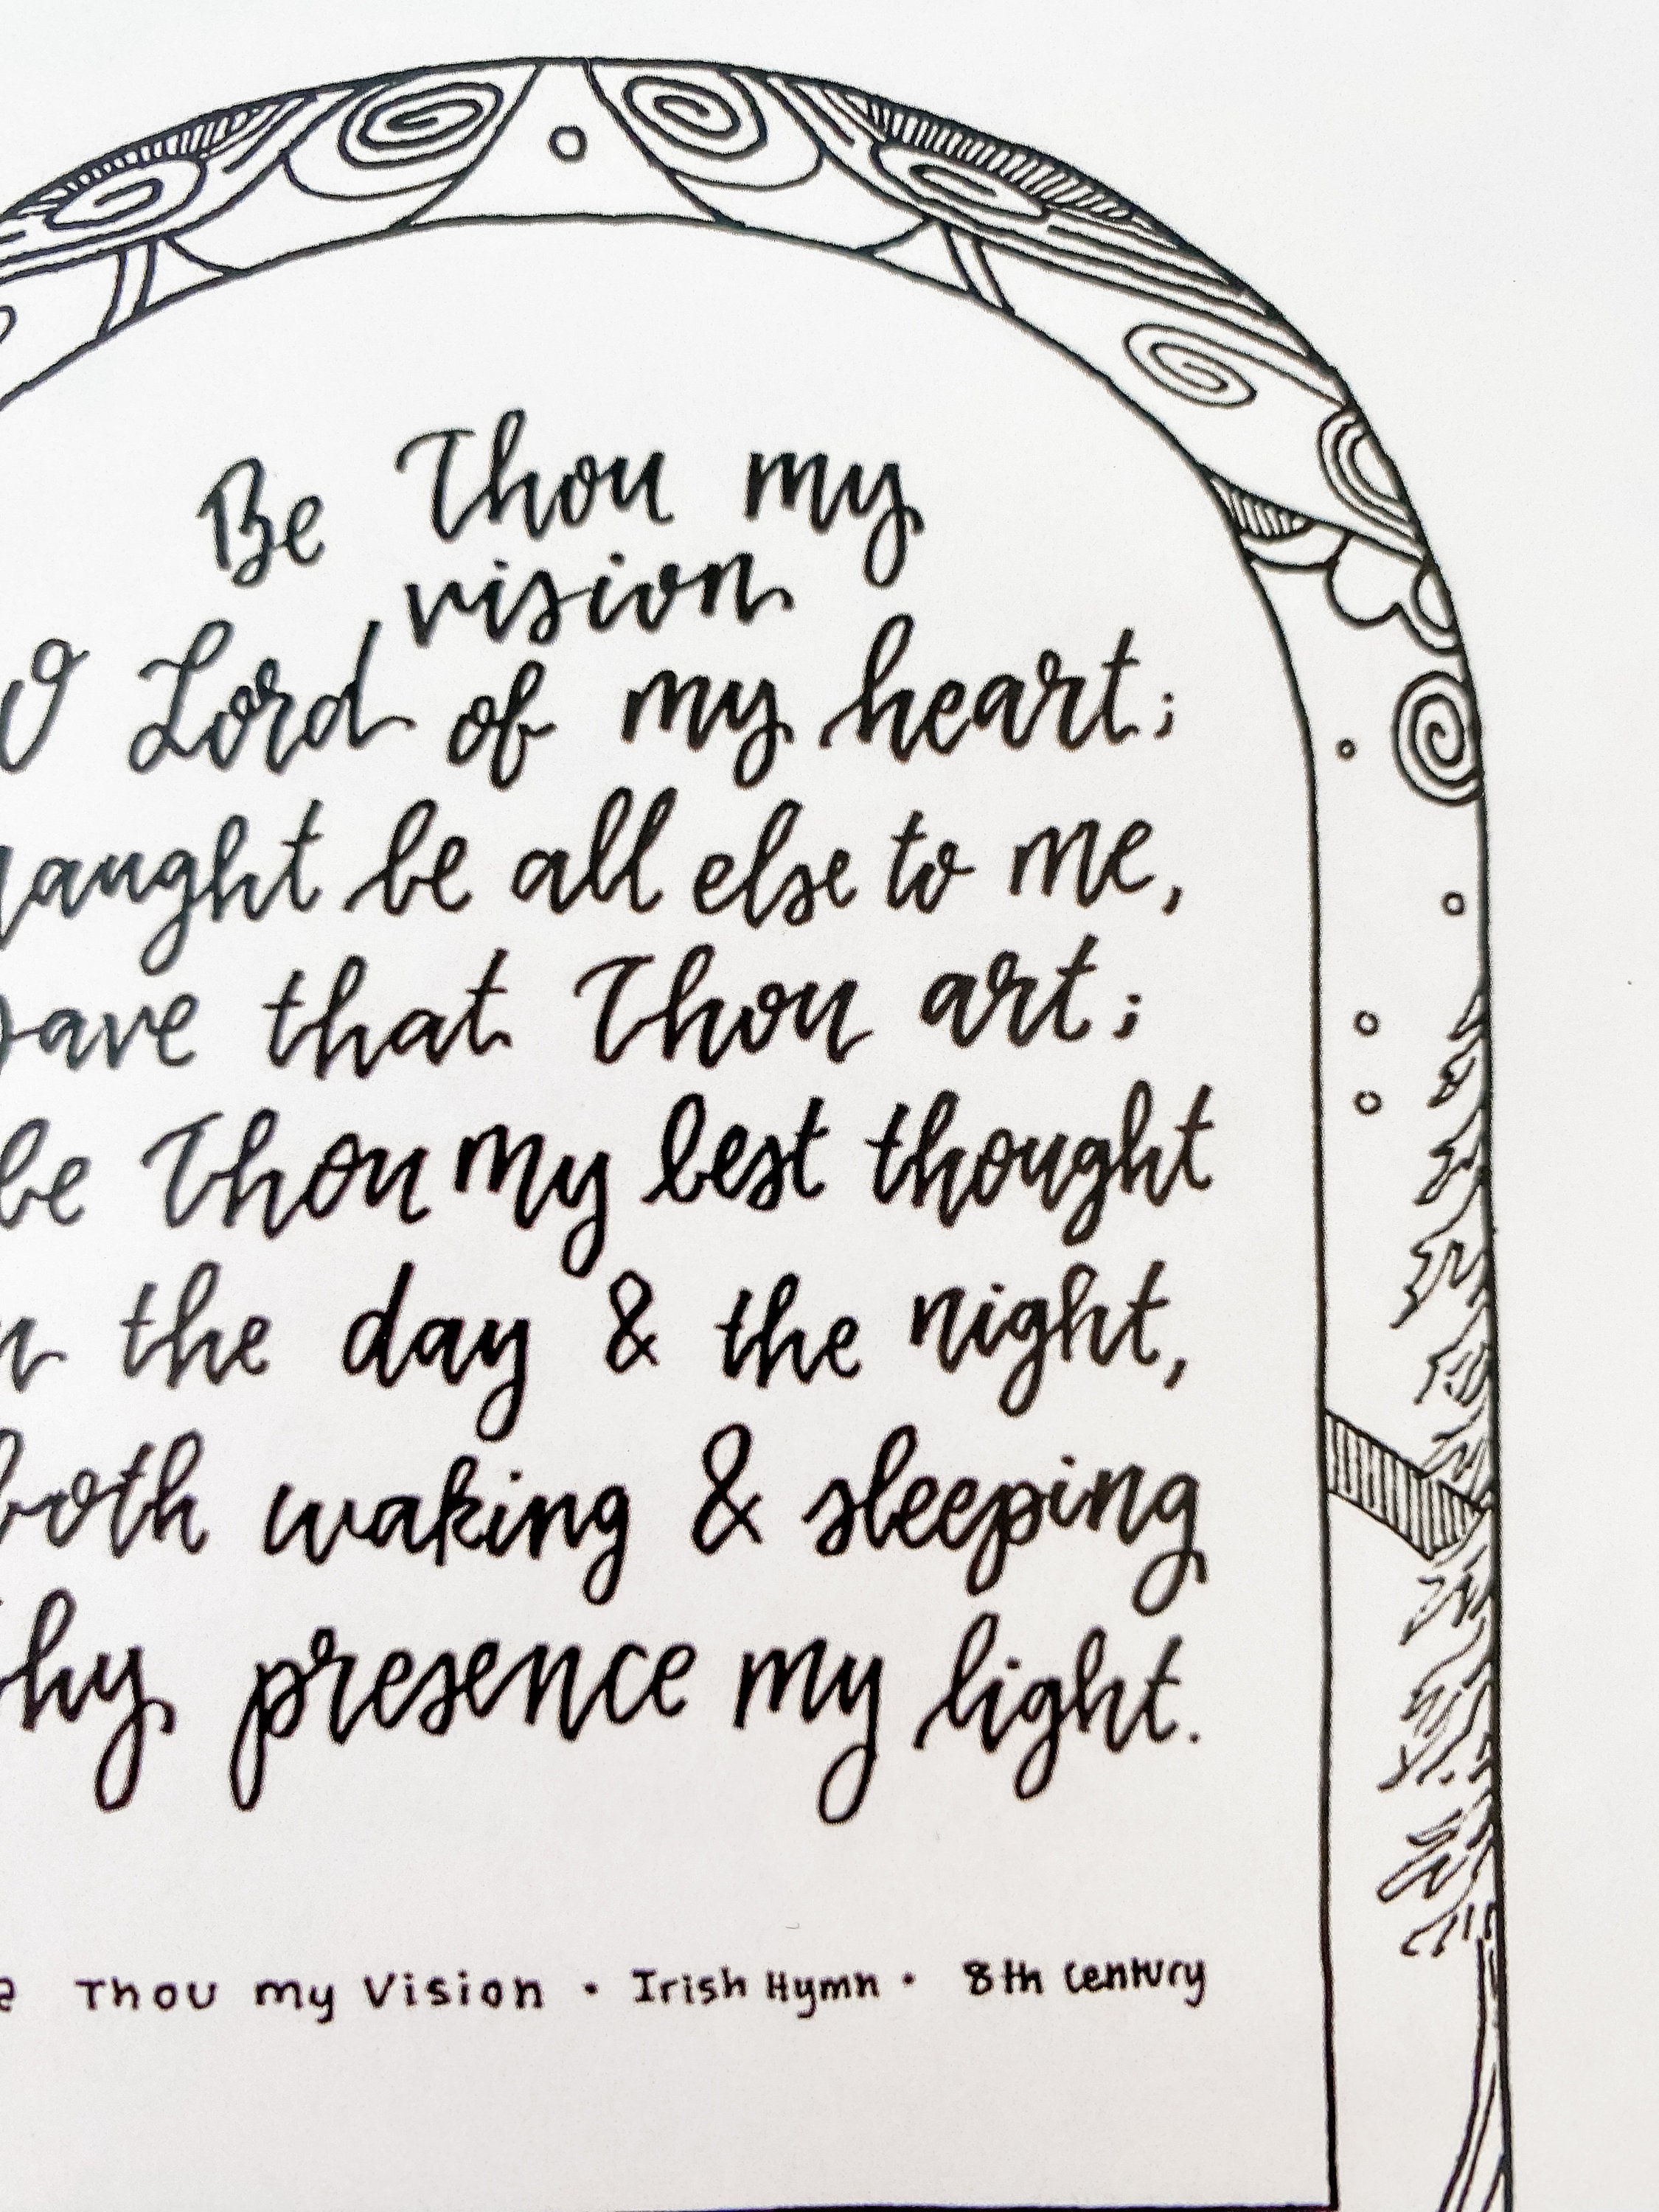 Be Thou my
vision
O Lord of my heart;
naught be all else to me,
save that Thou art;
be Thou my best thought
the day & the night,
both waking & sleeping
presence my light.
Thou my Vision • Irish Hymn • 8th Century